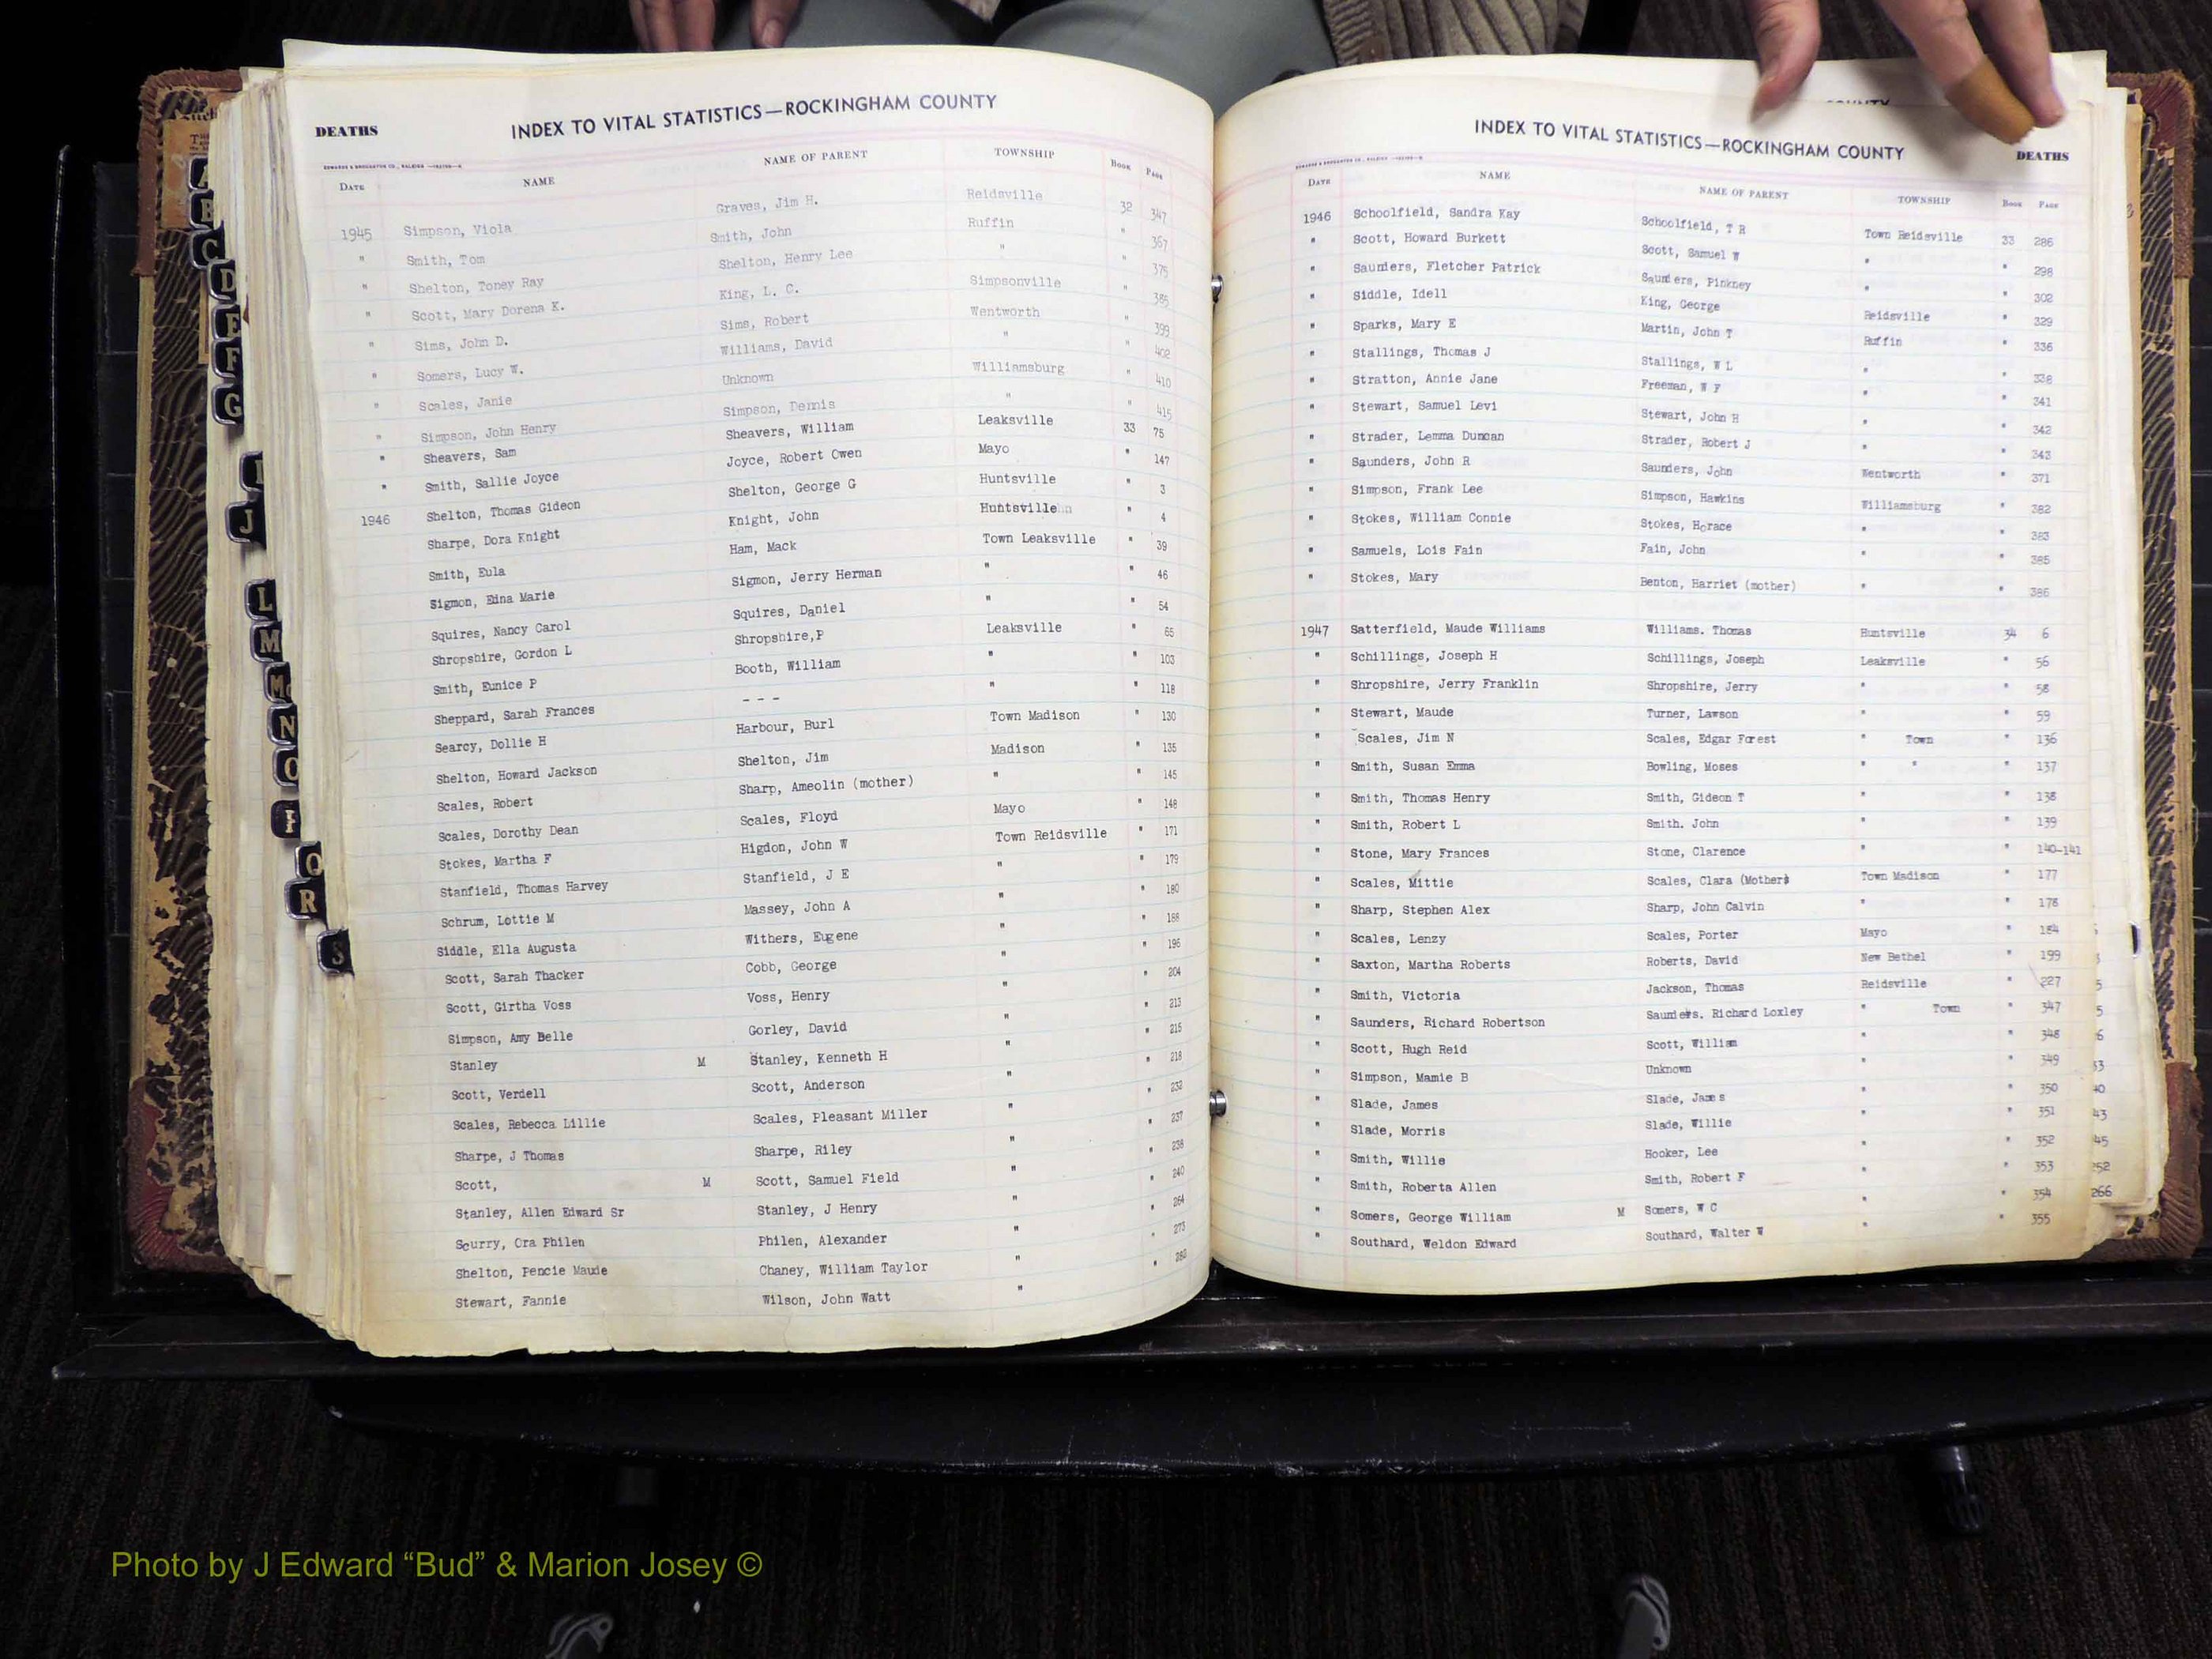 DEATHS INDEX TO VITAL STATISTICS—ROCKINGHAM COUNTY
DATE NAME NAME OF PARENT TOWNSHIP BOOK PAGE
1945 Simpson, Viola Graves, Jim H. Reidsville 32 347
" Smith, Tom Smith, John Ruffin " 367
" Shelton, Toney Ray Shelton, Henry Lee " " 375
" Scott, Mary Dorena K. King, L. C. Simpsonville " 385
" Sims, John D. Sims, Robert Wentworth " 399
" Somers, Lucy W. Williams, David " " 402
" Scales, Janie Unknown Williamsburg " 410
" Simpson, John Henry Simpson, Dennis " " 415
" Sheavers, Sam Sheavers, William Leaksville 33 75
" Smith, Sallie Joyce Joyce, Robert Owen Mayo " 147
1946 Shelton, Thomas Gideon Shelton, George G Huntsville " 3
Sharpe, Dora Knight Knight, John Huntsville " 4
Smith, Eula Ham, Mack Town Leaksville " 39
Sigmon, Edna Marie Sigmon, Jerry Herman " " 46
Squires, Nancy Carol Squires, Daniel " " 54
Shropshire, Gordon L Shropshire,P Leaksville " 65
Smith, Eunice P Booth, William " " 103
Sheppard, Sarah Frances - - - " " 118
Searcy, Dollie H Harbour, Burl Town Madison " 130
Shelton, Howard Jackson Shelton, Jim Madison " 135
Scales, Robert Sharp, Ameolin (mother) " " 145
Scales, Dorothy Dean Scales, Floyd Mayo " 148
Stokes, Martha F Higdon, John W Town Reidsville " 171
Stanfield, Thomas Harvey Stanfield, J E " " 179
Schrum, Lottie M Massey, John A " " 180
Siddle, Ella Augusta Withers, Eugene " " 188
Scott, Sarah Thacker Cobb, George " " 196
Scott, Girtha Voss Voss, Henry " " 204
Simpson, Amy Belle Gorley, David " " 213
Stanley M Stanley, Kenneth H " " 215
Scott, Verdell Scott, Anderson " " 218
Scales, Rebecca Lillie Scales, Pleasant Miller " " 232
Sharpe, J Thomas Sharpe, Riley " " 237
Scott, M Scott, Samuel Field " " 238
Stanley, Allen Edward Sr Stanley, J Henry " " 240
Scurry, Ora Philen Philen, Alexander " " 264
Shelton, Pencie Maude Chaney, William Taylor " " 273
Stewart, Fannie Wilson, John Watt " " 282
COUNTY
INDEX TO VITAL STATISTICS—ROCKINGHAM COUNTY DEATHS
DATE NAME NAME OF PARENT TOWNSHIP BOOK PAGE
1946 Schoolfield, Sandra Kay Schoolfield, T R Town Reidsville 33 286
" Scott, Howard Burkett Scott, Samuel W " " 298
" Saunders, Fletcher Patrick Saunders, Pinkney " " 302
" Siddle, Idell King, George Reidsville " 329
" Sparks, Mary E Martin, John T Ruffin " 336
" Stallings, Thomas J Stallings, W L " " 338
" Stratton, Annie Jane Freeman, W F " " 341
" Stewart, Samuel Levi Stewart, John H " " 342
" Strader, Lemma Duncan Strader, Robert J " " 343
" Saunders, John R Saunders, John Wentworth " 371
" Simpson, Frank Lee Simpson, Hawkins Williamsburg " 382
" Stokes, William Connie Stokes, Horace " " 383
" Samuels, Lois Fain Fain, John " " 385
" Stokes, Mary Benton, Harriet (mother) " " 386
1947 Satterfield, Maude Williams Williams. Thomas Huntsville 34 6
" Schillings, Joseph H Schillings, Joseph Leaksville " 56
" Shropshire, Jerry Franklin Shropshire, Jerry " " 58
" Stewart, Maude Turner, Lawson " " 59
" Scales, Jim N Scales, Edgar Forest " Town " 136
" Smith, Susan Emma Bowling, Moses " " " 137
" Smith, Thomas Henry Smith, Gideon T " " 138
" Smith, Robert L Smith. John " " 139
" Stone, Mary Frances Stone, Clarence " " 140-141
" Scales, Mittie Scales, Clara (Mother) Town Madison " 177
" Sharp, Stephen Alex Sharp, John Calvin " " 178
" Scales, Lenzy Scales, Porter Mayo " 184
" Saxton, Martha Roberts Roberts, David New Bethel " 199
" Smith, Victoria Jackson, Thomas Reidsville " 227
" Saunders, Richard Robertson Saunders. Richard Loxley " Town " 347
" Scott, Hugh Reid Scott, William " " 348
" Simpson, Mamie B Unknown " " 349
" Slade, James Slade, James " " 350
" Slade, Morris Slade, Willie " " 351
" Smith, Willie Hooker, Lee " " 352
" Smith, Roberta Allen Smith, Robert F " " 353
" Somers, George William M Somers, W C " " 354
" Southard, Weldon Edward Southard, Walter W " " 355
266
A
B
C
D
E
F
G
I
J
L
M
Mc
N
O
P
Q
R
S
Photo by J Edward “Bud” & Marion Josey ©